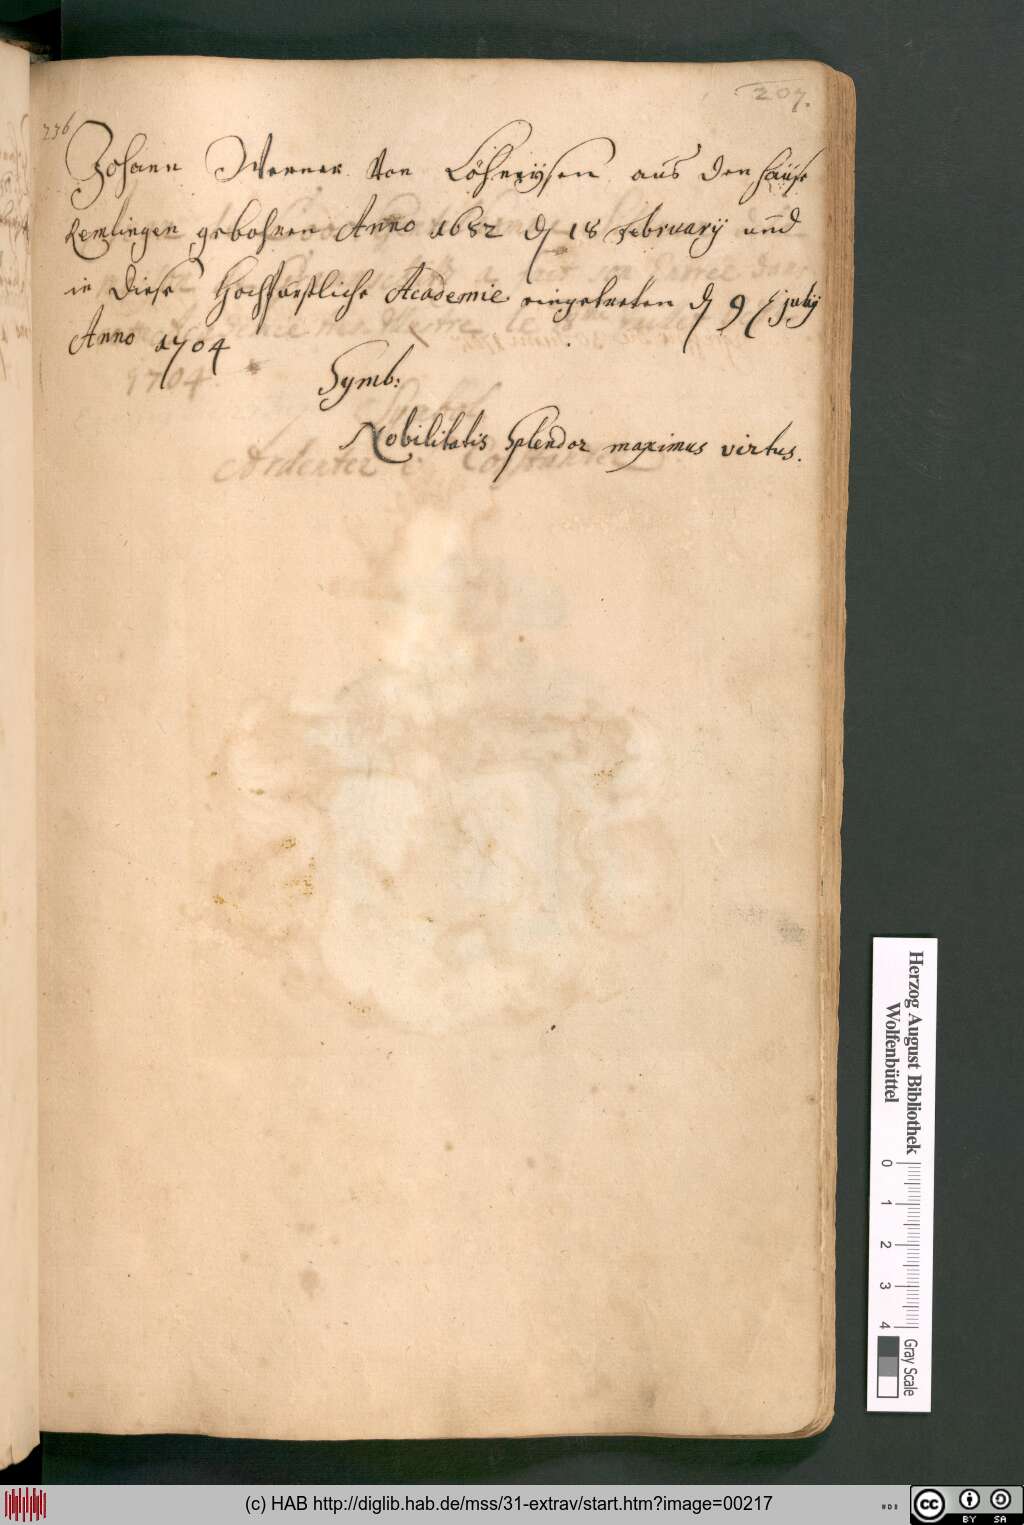 207.
236
Johann Werner Von Löhneÿsen aus den Hause
Remlingen gebohren Anno 1682 d 18 Februarÿ und
in diese Hochfürstliche Academie eingetreten d 9 julÿ
Anno 1704
Symb:
Nobilitatis Splendor maximus virtus.
1704
Ardenter e
Herzog August Bibliothek
Wolfenbüttel
0 1 2 3 4
Gray Scale
(c) HAB http://diglib.hab.de/mss/31-extrav/start.htm?image=00217
cc BY SA